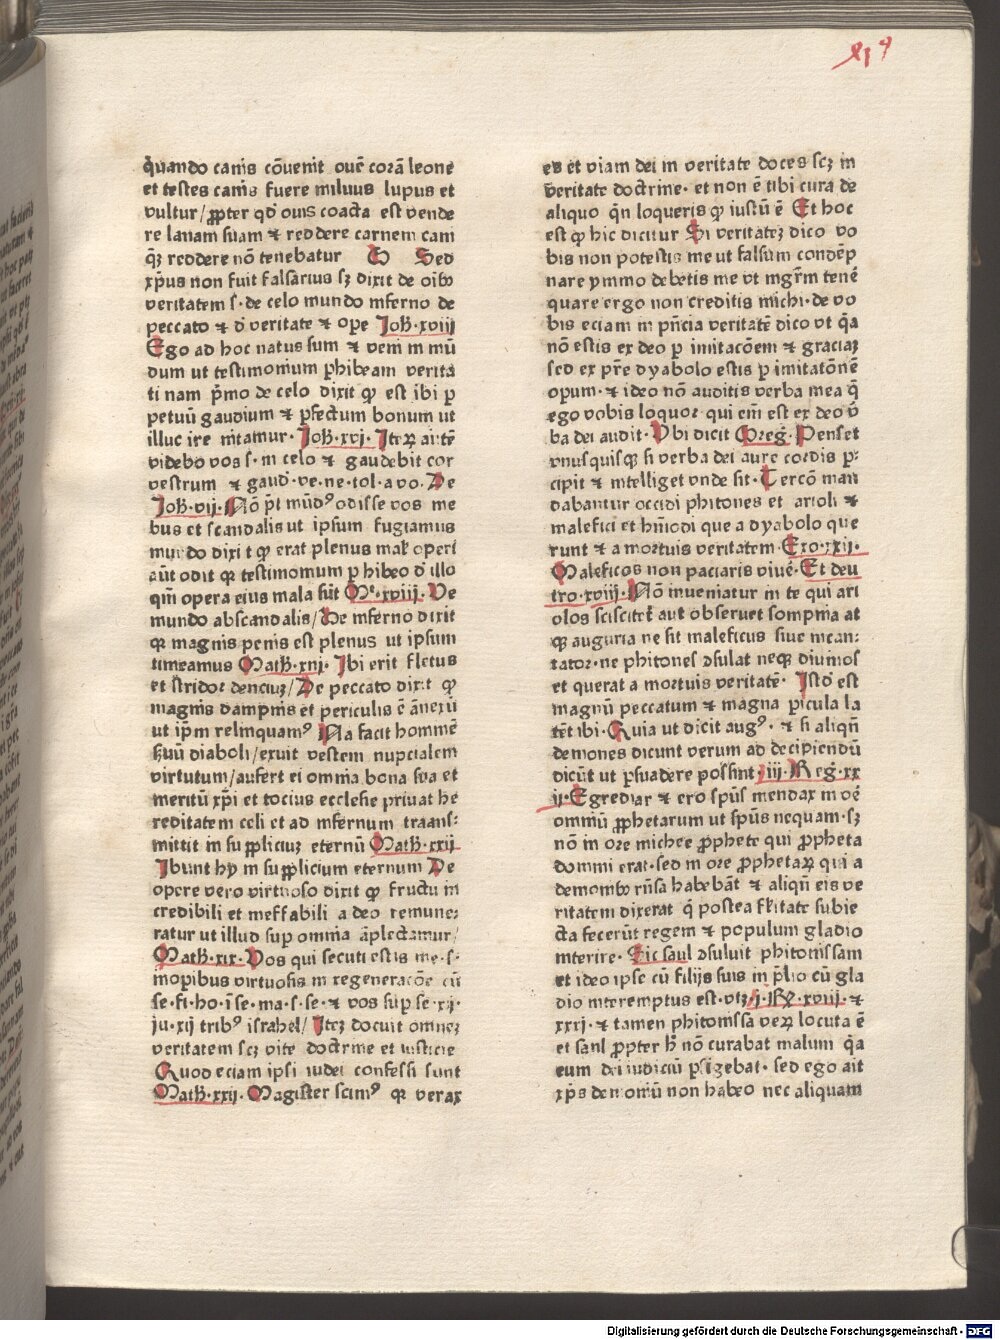 quando canis cōvenit ovē corā leone
et testes canis fuere miluus lupus et
vultur / ꝓpter qd̕ ouis coacta est vende
re lanam suam ⁊ reddere carnem cani
qꝫ reddere nō tenebatur G Sed
xp̄us non fuit falsarius sꝫ dixit de oībꝰ
veritatem s· de celo mundo inferno de
peccato ⁊ d̕ veritate ⁊ ope Joh̄·xviij
Ego ad hoc natus sum ⁊ veni in mū
dum ut testimonium ꝓhibeam verita
ti nam p̄mo de celo dixit ꝙ est ibi p
petuū gaudium ⁊ pfectum bonum ut
illuc ire nitamur· Joh̄·xvj· Iteꝝ autē
videbo vos s· in celo ⁊ gaudebit cor
vestrum ⁊ gaud̕·ve·ne·tol·a vo· De
Joh̄·vij· Nō p̄t mūdꝰ odisse vos me
bus et scandalis ut ipsum fugiamus
mundo dixit ꝙ erat plenus mal̕ operi
aūt odit qꝛ testimonium p hibeo d̕ illo
qm̄ opera eius mala sūt Mt̕·xviij· Ve
mundo abscandalis / De inferno dixit
qꝛ magnis penis est plenus ut ipsum
timeamus Math̄·xiij· Ibi erit fletus
et stridor denciuꝫ / De peccato dixit ꝙ
magnis dampnis et periculis ē ānexū
ut ip̄m relinquamꝰ Na facit hominē
s̄uū diaboli / exuit vestem nupcialem
virtutum / aufert ei omnia bona sua et
meritū xp̄i et tocius ecclesie privat he
reditatem celi et ad infernum trans⸗
mittit in suppliciuꝫ eternū Math̄·xxij
Ibunt hy in supplicium eternum De
opere vero virtuoso dixit ꝙ fructu in
credibili et ineffabili a deo remune⸗
ratur ut illud sup omnia āplectamur /
Math̄·xix· Vos qui secuti estis me·s·
in opibus virtuosis in regeneracōe cū
se·fi·ho·ī se·ma·s·se·⁊ vos sup se·xij·
ju·xij tribꝰ israhel / Iteꝫ docuit omneꝫ
veritatem scꝫ vite doctrine et iusticie
Quod eciam ipsi iudei confessi sunt
Math̄·xxij· Magister scimꝰ qꝛ verax
es et viam dei in veritate doces scꝫ in
veritate doctrine· et non ē tibi cura de
aliquo qn̄ loqueris ꝙ iustū ē Et hoc
est ꝙ hic dicitur Si veritateꝫ dico vo
bis non potestis me ut falsum condēp
nare ymmo debetis me vt mgr̄m tenē
quare ergo non creditis michi· de vo
bis eciam in p̄ncia veritatē dico vt q̄a
nō estis ex deo p imitacōem ⁊ graciaꝫ
sed ex pr̄e dyabolo estis p imitatōnē
opum· ⁊ ideo nō auditis verba mea q̄
ego vobis loquor· qui eīn est ex deo v̄
ba dei audit· Vbi dicit Greg̕· Penset
vnusquisqꝫ si verba dei aure cordis p⸗
cipit ⁊ intelliget vnde sit· Tercō man
dabantur occidi phitones et arioli ⁊
malefici et hm̄odi que a dyabolo que
runt ⁊ a mortuis veritatem Exo·xxij·
Maleficos non paciaris viuē· Et deu
tro·xviij· Nō inveniatur in te qui ari
olos sciscitet̄ aut obseruet sompnia at
qꝫ auguria ne sit maleficus siue incan⸗
tator· ne phitones ↄsulat neqꝫ diuinos
et querat a mortuis veritatē· Istd̕ est
magnū peccatum ⁊ magna picula la
tēt ibi· Quia ut dicit augꝰ· ⁊ si aliqn̄
demones dicunt verum ad decipiendū
dicūt ut psuadere possint· iij· Reg̕·xx
ij· Egrediar ⁊ ero spūs mendax in oē
omniū ꝓphetarum ut spūs nequam· sꝫ
nō in ore michee ꝓphete qui ꝓpheta
domini erat· sed in ore ꝓphetaꝝ qui a
demonibꝰ rn̄sa habebāt ⁊ aliqn̄ eis ve
ritatem dixerat q̄ postea fl̄sitate subie
cta fecerūt regem ⁊ populum gladio
interire· Sic saul ↄsuluit phitonissam
et ideo ipse cū filijs suis in p̄lio cū gla
dio interemptus est· vtꝫ· j· Rꝝ·xviij· ⁊
xxxj· ⁊ tamen phitonissa veꝝ locuta ē
et saul ꝓpter h̄ nō curabat malum q̄a
eum dei iudiciū psigebat· sed ego ait
xp̄s demoniū non habeo nec aliquam
Digitalisierung gefördert durch die Deutsche Forschungsgemeinschaft · DFG